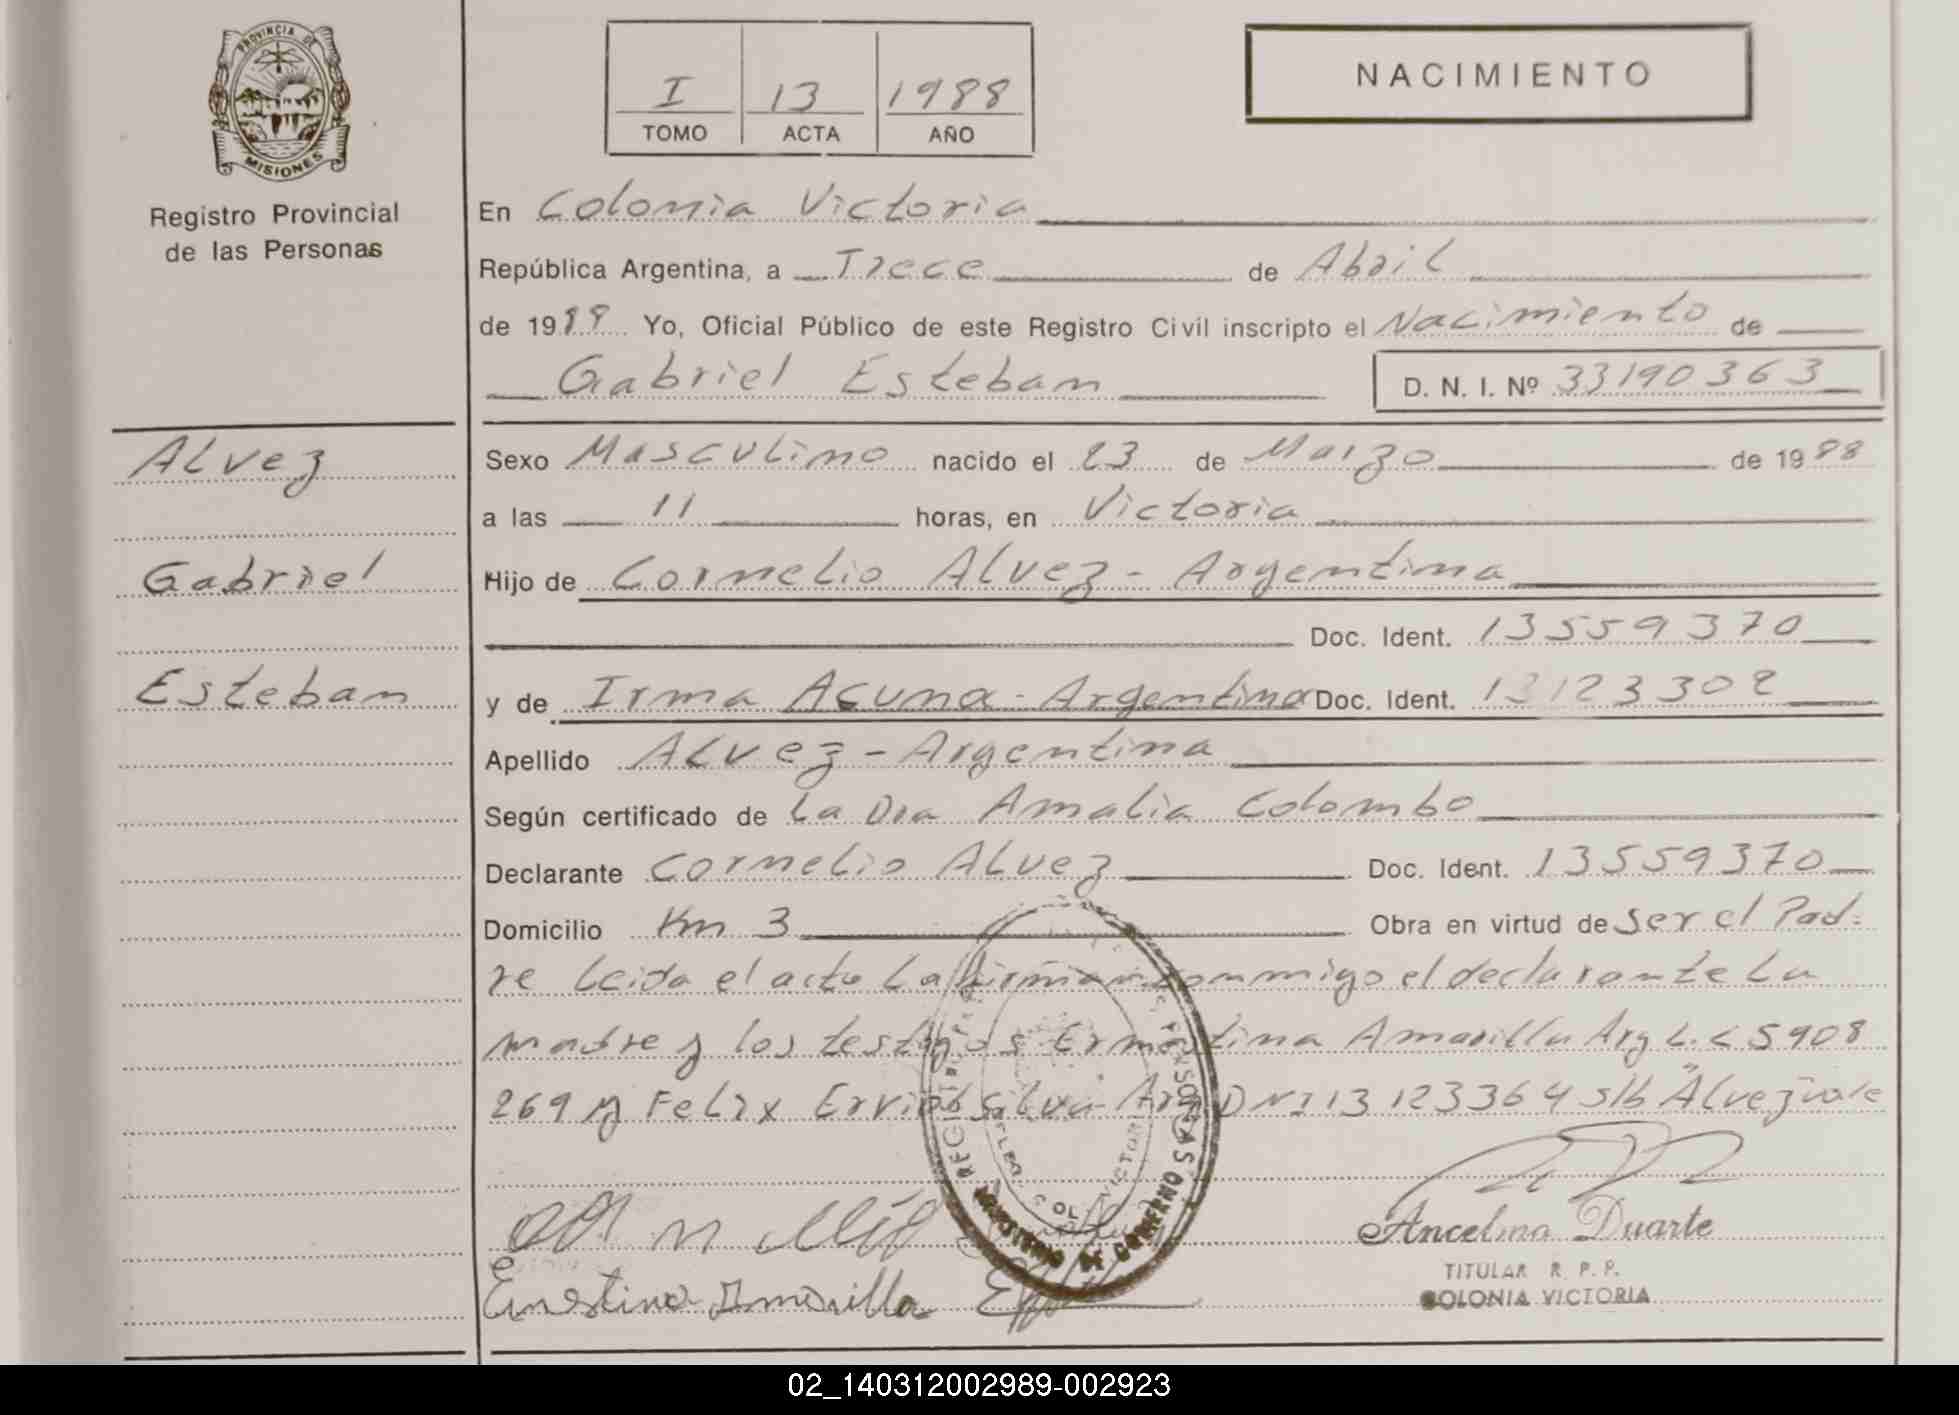 PROVINCIA DE
MISIONES
Registro Provincial
de las Personas
I 13 1988
TOMO ACTA AÑO
NACIMIENTO
En Colonia Victoria
República Argentina, a Trece de Abril
de 1988 Yo, Oficial Público de este Registro Civil inscripto el Nacimiento de
Gabriel Esteban D. N. I. Nº 33190363
Alvez
Gabriel
Esteban
Sexo Masculino nacido el 23 de Marzo de 1988
a las 11 horas, en Victoria
Hijo de Cornelio Alvez - Argentina
Doc. Ident. 13559370
y de Irma Acuna - Argentina Doc. Ident. 13123302
Apellido Alvez - Argentina
Según certificado de la Dra Amalia Colombo
Declarante Cornelio Alvez Doc. Ident. 13559370
Domicilio Km 3 Obra en virtud de ser el Pad-
re Leida el acta La firman conmigo el declarante La
madre y los testigos Ernestina Amarilla Arg L.C 5908
269 y Felix Ervin Silva Arg DNI 13123364 s/b "Alvez" vale
REGISTRO PERSONAS
MINISTERIO DE GOBIERNO
COL. VICTORIA
Ernestina Amarilla
Ancelma Duarte
TITULAR R. P. P.
COLONIA VICTORIA
02_140312002989-002923